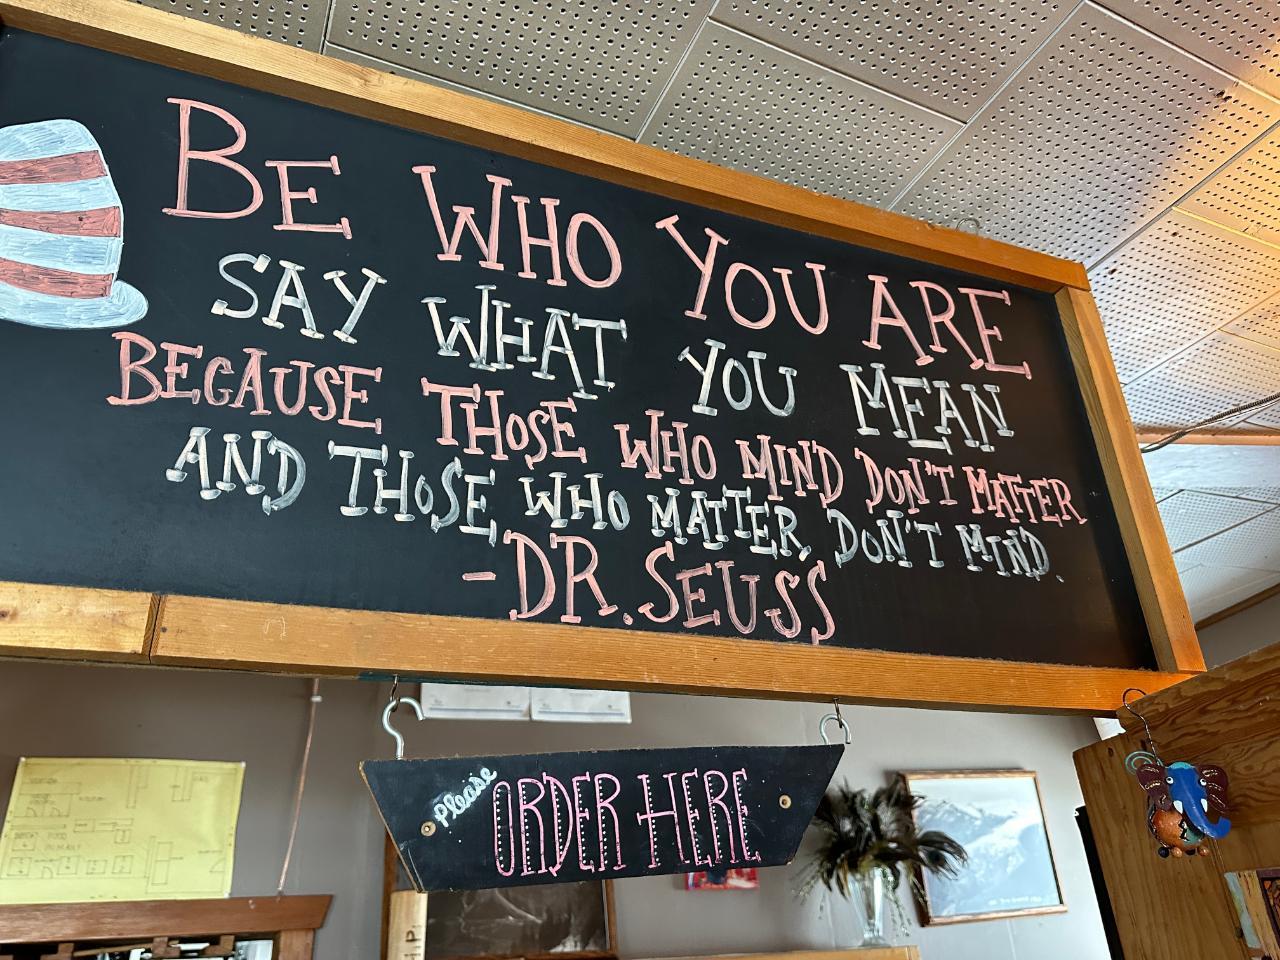 BE WHO YOU ARE
SAY WHAT YOU MEAN
BECAUSE THOSE WHO MIND DON'T MATTER
AND THOSE WHO MATTER, DON'T MIND.
-DR. SEUSS
Please ORDER HERE